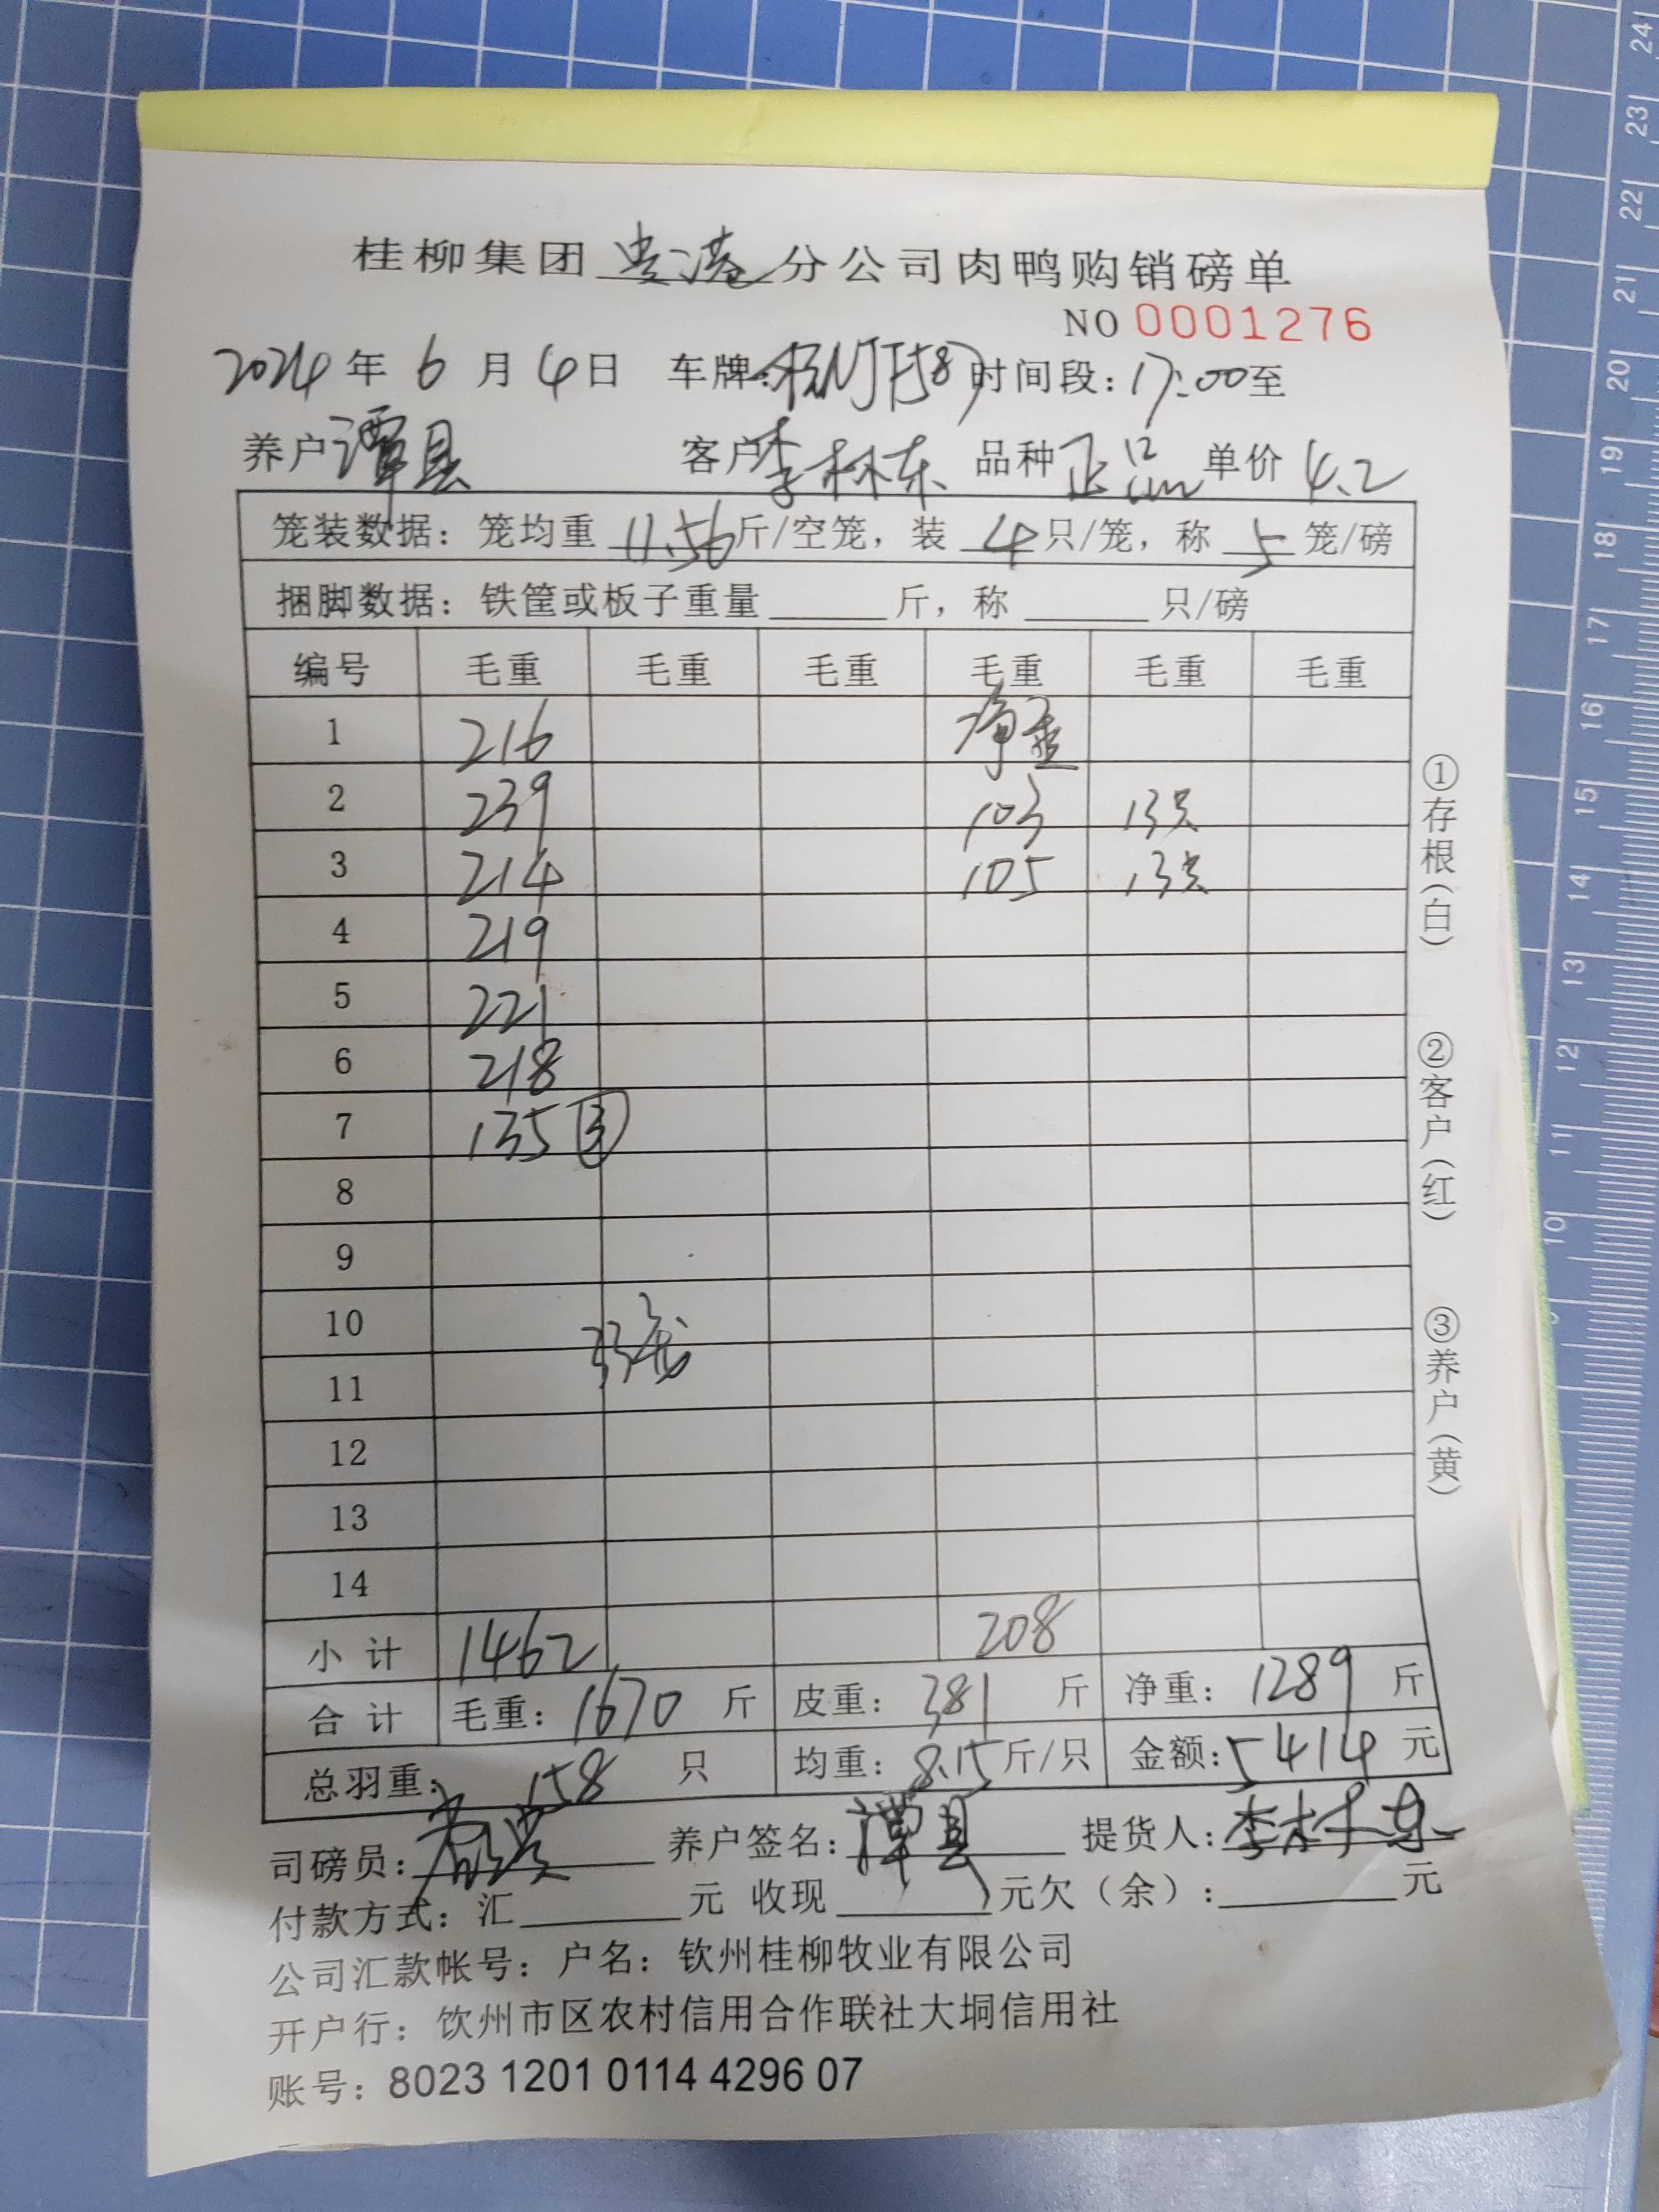 桂柳集团贵港分公司肉鸭购销磅单
NO 0001276
2024年6月4日 车牌: 时间段: 17:00至
养户谭县 客户李林东 品种正品 单价4.2
笼装数据: 笼均重11.56斤/空笼, 装4只/笼, 称5笼/磅
捆脚数据: 铁筐或板子重量____斤, 称____只/磅
编号 毛重 毛重 毛重 毛重 毛重 毛重
1 216 净重
2 239 103 13只
3 214 105 13只
4 219
5 221
6 218
7 135 ③
8
9
10
33笼
11
12
13
14
小计 1462 208
合计 毛重: 1670斤 皮重: 381斤 净重: 1289斤
总羽重: 158只 均重: 8.15斤/只 金额: 5414元
司磅员: 养户签名: 谭县 提货人: 李林东
付款方式: 汇____元 收现____元欠(余): ____元
公司汇款帐号: 户名: 钦州桂柳牧业有限公司
开户行: 饮州市区农村信用合作联社大垌信用社
账号: 8023 1201 0114 4296 07
①存根(白)
②客户(红)
③养户(黄)
24
23
22
21
20
19
18
17
16
15
14
13
12
11
10